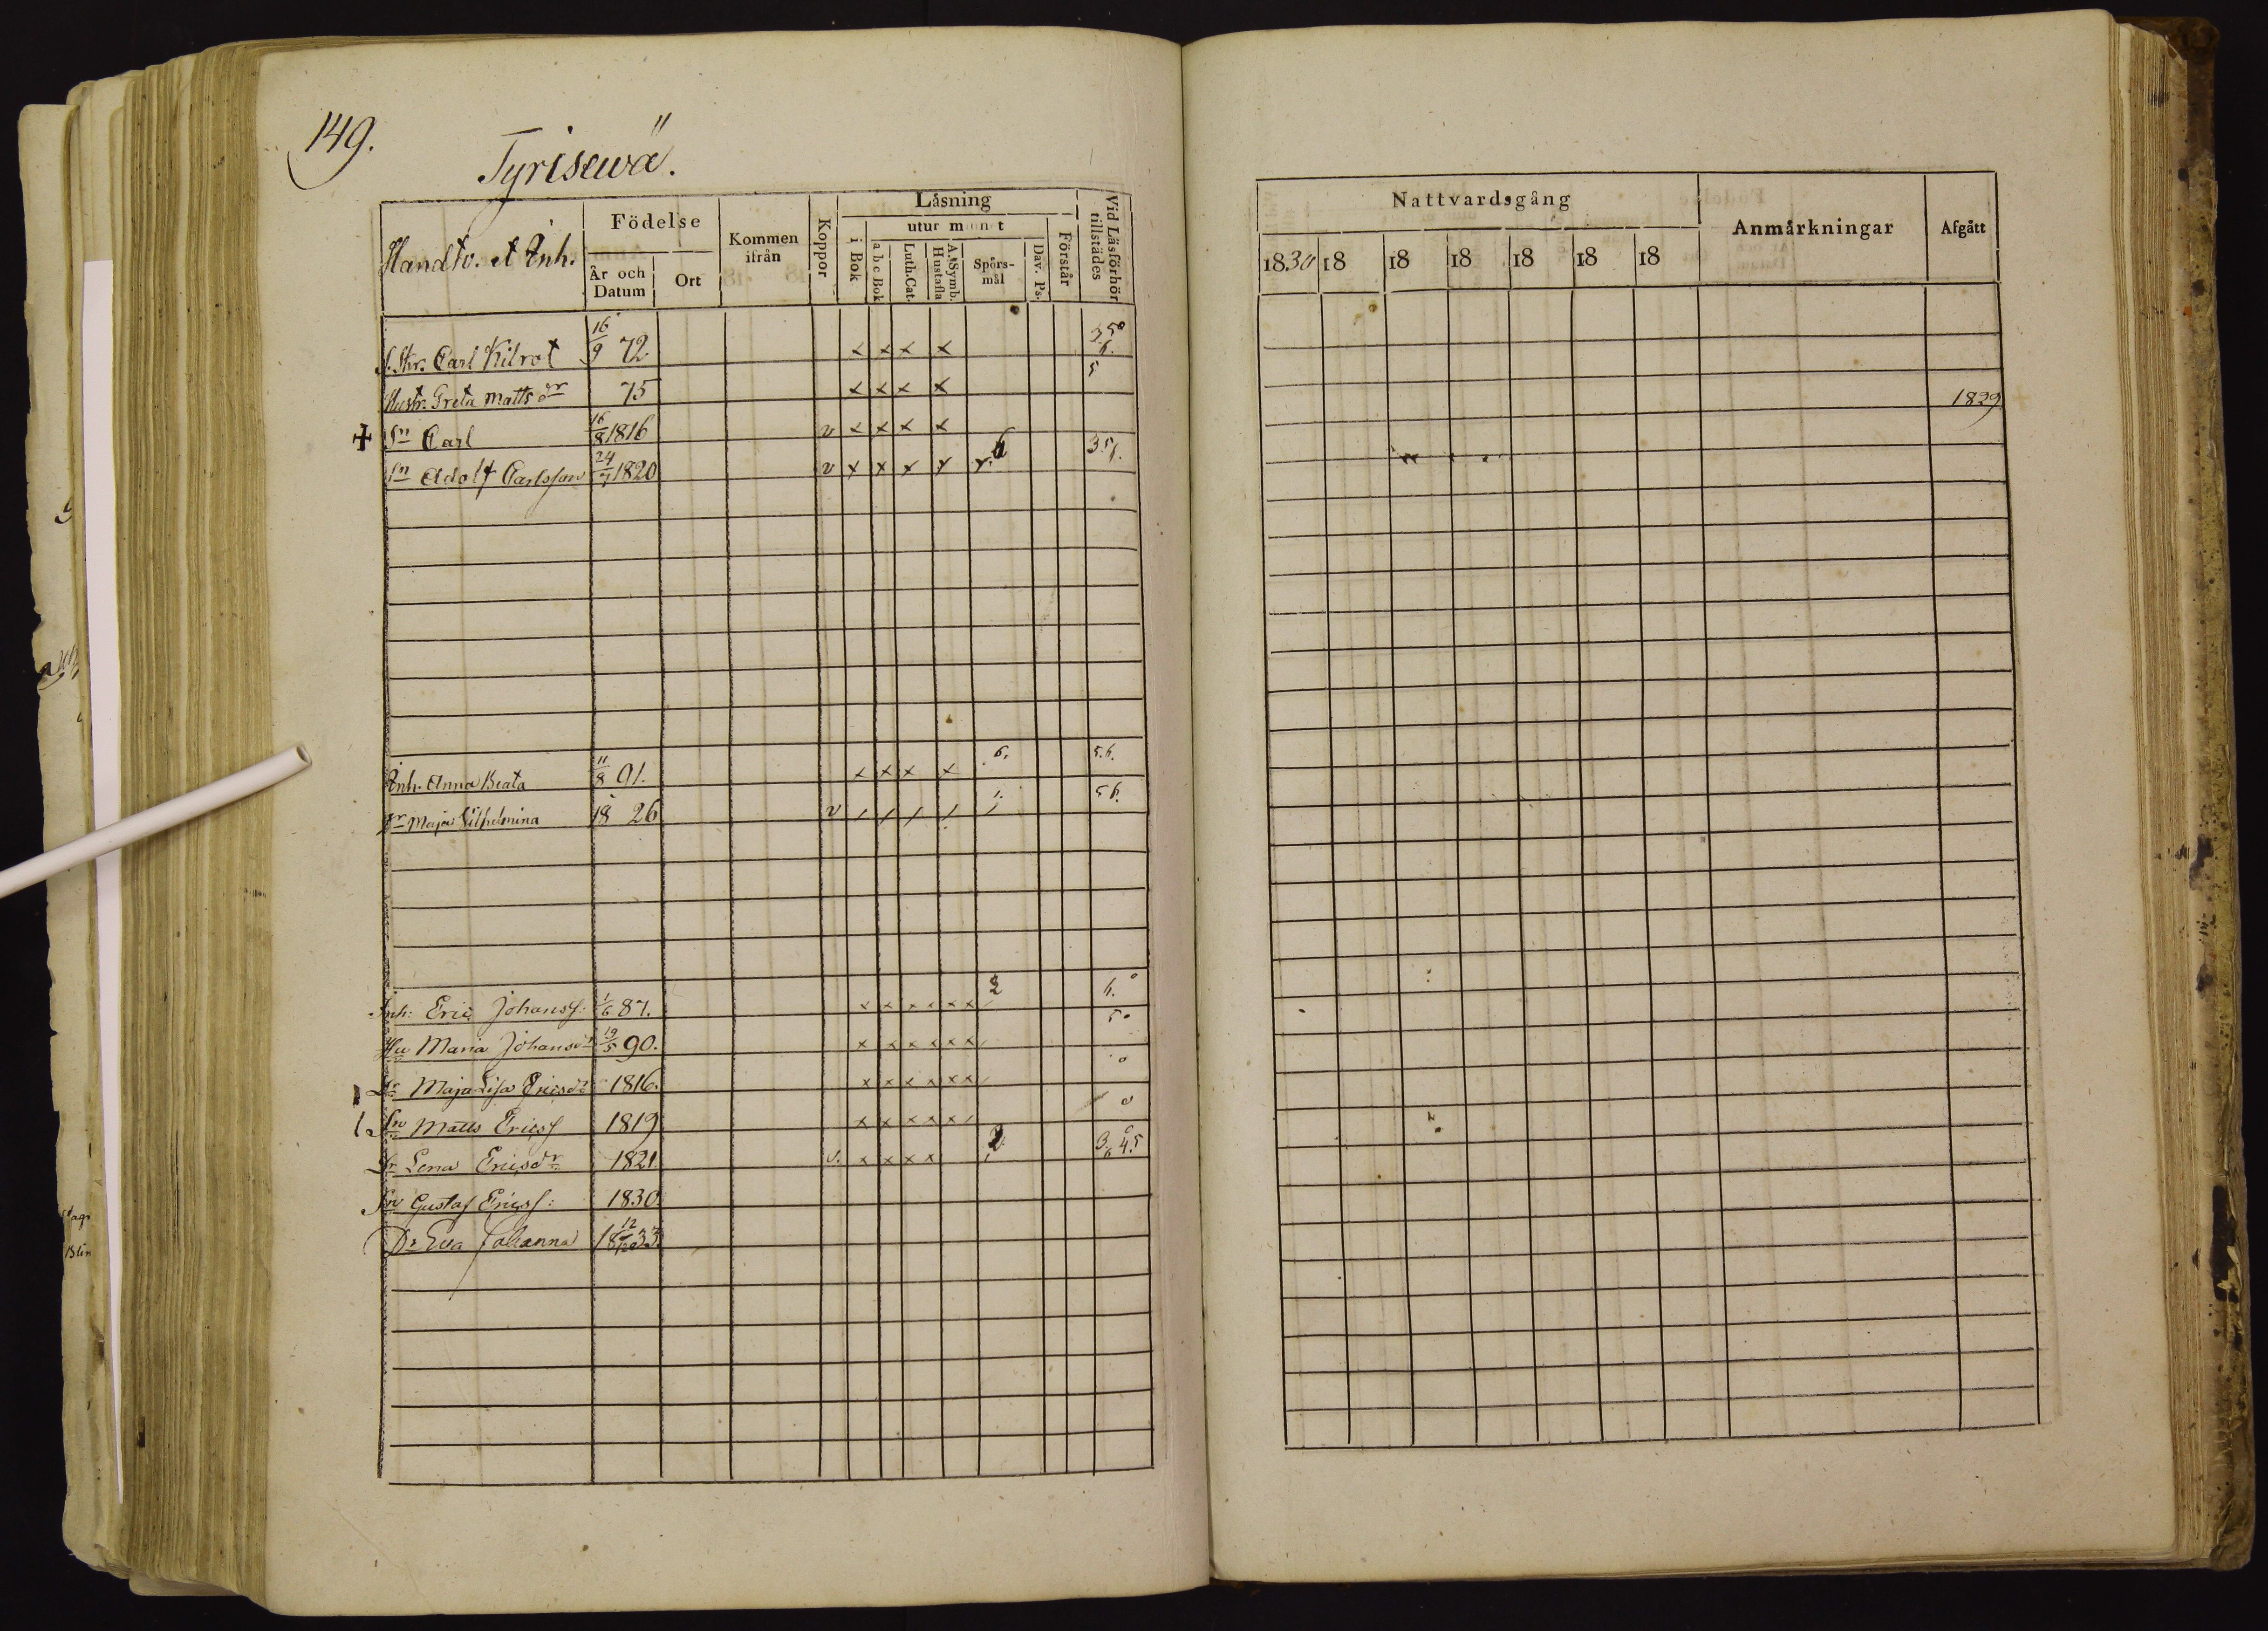 149.
Tyrisewä.
Handtv. et Inh.
Födelse
År och Datum
Ort
Kommen ifrån
Koppor
Läsning
i Bok
utur munt
a b c Bok
Luth. Cat.
A. Symb. Hustafla
Spörs-mål
Dav. Ps.
Förstår
Vid Läsförhör tillstädes
Nattvardsgång
1830 18 18 18 18 18 18
Anmärkningar
Afgått
S. Skr. Carl Kilrot 16/9 72 x x x x 3 5 6.
Hustr. Greta Matts dr 75 x x x x 5
+ Sn Carl 16/8 1816 v x x x x 1829
Sn Adolf Carlsson 24/7 1820 v x x x x 6 3 5 6.
Inh. Anna Beata 11/8 91. x x x x 6. 5.6.
Dr Maja Vilhelmina 18 26 v / / / / / 5 6.
Inh: Eric Johanss: 1/6 87. x x x x x x 2 6.
Hu Maria Johansdr 19/5 90. x x x x x x 5
Dr Maja Lisa Ericsdr 1816. x x x x x x
Sn Matts Ericss 1819 x x x x x
Dr Lena Ericsdr 1821 v. x x x x 2 3 4.5
Sn Gustaf Ericss: 1830
Dr Eva Johanna 18 12/12 33